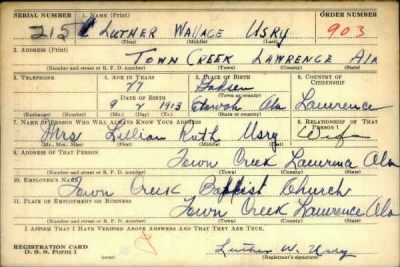 SERIAL NUMBER 1. NAME (Print) ORDER NUMBER
215 LUTHER WALLACE USRY 903
(First) (Middle) (Last)
2. ADDRESS (Print)
TOWN CREEK LAWRENCE ALA
(Number and street or R. F. D. number) (Town) (County) (State)
3. TELEPHONE 4. AGE IN YEARS 5. PLACE OF BIRTH 6. COUNTRY OF CITIZENSHIP
27 Gadsden
(Town or county)
DATE OF BIRTH
9 7 1913 Etowah Ala Lawrence
(Exchange) (Number) (Mo.) (Day) (Yr.) (State or country)
7. NAME OF PERSON WHO WILL ALWAYS KNOW YOUR ADDRESS 8. RELATIONSHIP OF THAT PERSON
Mrs Lillian Ruth Usry Wife
(Mr., Mrs., Miss) (First) (Middle) (Last)
9. ADDRESS OF THAT PERSON
Town Creek Lawrence Ala
(Number and street or R. F. D. number) (Town) (County) (State)
10. EMPLOYER'S NAME
Town Creek Baptist Church
11. PLACE OF EMPLOYMENT OR BUSINESS
Town Creek Lawrence Ala
(Number and street or R. F. D. number) (Town) (County) (State)
I AFFIRM THAT I HAVE VERIFIED ABOVE ANSWERS AND THAT THEY ARE TRUE.
REGISTRATION CARD
D. S. S. Form 1 Luther W. Usry